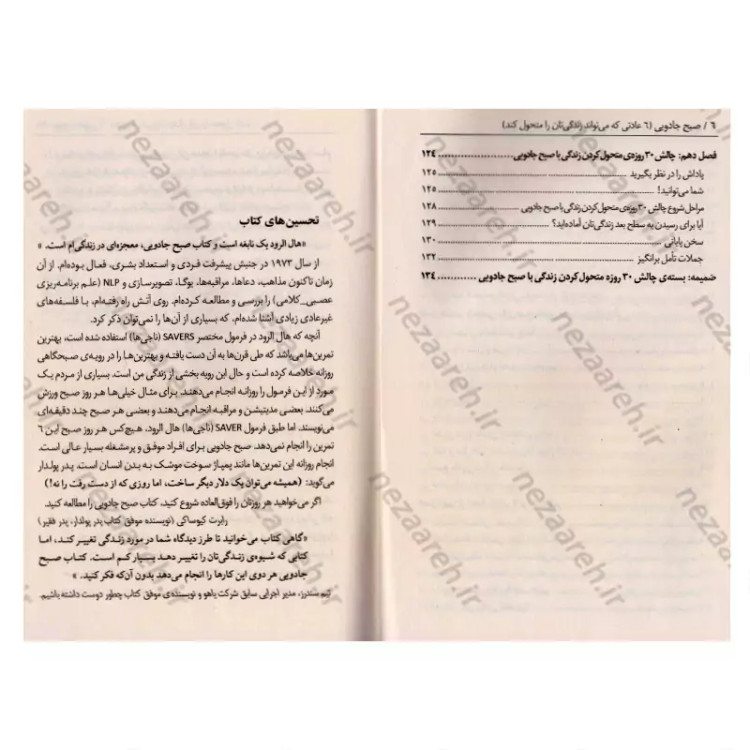 ۶ / صبح جادویی (۶ عادتی که می‌تواند زندگی‌تان را متحول کند)
فصل دهم: چالش ۳۰ روزه‌ی متحول کردن زندگی با صبح جادویی ........ ۱۲۴
پاداش را در نظر بگیرید ........ ۱۲۵
شما می‌توانید! ........ ۱۲۵
مراحل شروع چالش ۳۰ روزه‌ی متحول کردن زندگی با صبح جادویی ........ ۱۲۸
آیا برای رسیدن به سطح بعد زندگی‌تان آماده‌اید؟ ........ ۱۲۹
سخن پایانی ........ ۱۳۰
جملات تأمل برانگیز ........ ۱۳۲
ضمیمه: بسته‌ی چالش ۳۰ روزه متحول کردن زندگی با صبح جادویی ........ ۱۳۴
تحسین‌های کتاب
«هال الرود یک نابغه است و کتاب صبح جادویی، معجزه‌ای در زندگی‌ام است. »
از سال ۱۹۷۳ در جنبش پیشرفت فردی و استعداد بشری، فعال بوده‌ام. از آن
زمان تاکنون مذاهب، دعاها، مراقبه‌ها، یوگا، تصویرسازی و NLP (علم برنامه‌ریزی
عصبی_کلامی) را بررسی و مطالعه کرده‌ام. روی آتش راه رفته‌ام، با فلسفه‌های
غیرعادی زیادی آشنا شده‌ام، که بسیاری از آن‌ها را نمی‌توان ذکر کرد.
آنچه که هال الرود در فرمول مختصر SAVERS (ناجی‌ها) استفاده شده است، بهترین
تمرین‌ها می‌باشد که طی قرن‌ها به آن دست یافته و بهترین‌ها را در رویه‌ی صبحگاهی
روزانه خلاصه کرده است و حال این رویه بخشی از زندگی من است. بسیاری از مردم یک
مورد از این فرمول را روزانه انجام می‌دهند. برای مثال خیلی‌ها هر روز صبح ورزش
می‌کنند. بعضی مدیتیشن و مراقبه انجام می‌دهند و بعضی هر صبح چند دقیقه‌ای
می‌نویسند. اما طبق فرمول SAVER (ناجی‌ها) هال الرود، هیچ‌کس هر روز صبح این ۶
تمرین را انجام نمی‌دهد. صبح جادویی برای افراد موفق و پرمشغله بسیار عالی است.
انجام روزانه این تمرین‌ها مانند پمپاژ سوخت موشک به بدن انسان است. پدر پولدار
می‌گوید: (همیشه می‌توان یک دلار دیگر ساخت، اما روزی که از دست رفت را نه!)
اگر می‌خواهید هر روزتان را فوق‌العاده شروع کنید، کتاب صبح جادویی را مطالعه کنید.
رابرت کیوساکی (نویسنده موفق کتاب پدر پولدار، پدر فقیر)
«گاهی کتاب می‌خوانید تا طرز دیدگاه شما در مورد زندگی تغییر کند، اما
کتابی که شیوه‌ی زندگی‌تان را تغییر دهد بسیار کم است. کتاب صبح
جادویی هر دوی این کارها را انجام می‌دهد بدون آن‌که فکر کنید. »
تیم سندرز، مدیر اجرایی سابق شرکت یاهو و نویسنده‌ی موفق کتاب چطور دوست داشته باشیم.
nezaareh.ir